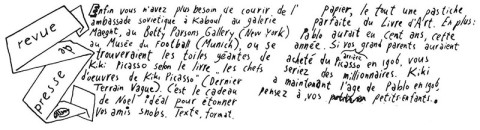 revue
de
presse
Enfin vous n'avez plus besoin de courir de l'
ambassade sovietique à Kaboul au galerie
Maeght, au Betty Parsons Gallery (New York)
au Musée du Football (Munich), ou se
trouveraient les toiles géantes de
Kiki Picasso selon le livre "les chefs
d'oeuvres de Kiki Picasso" (Dernier
Terrain Vague). C'est le cadeau
de Noel idéal pour étonner
vos amis snobs. Texte, format
papier, le tout une pastiche
parfaite du Livre d'Art. En plus:
Pablo aurait eu cent ans, cette
année. Si vos grand parents auraient
acheté du Picasso en 1906, vous
arrière
seriez des millionaires. Kiki
a maintenant l'age de Pablo en 1906,
pensez à vos petit-enfants..